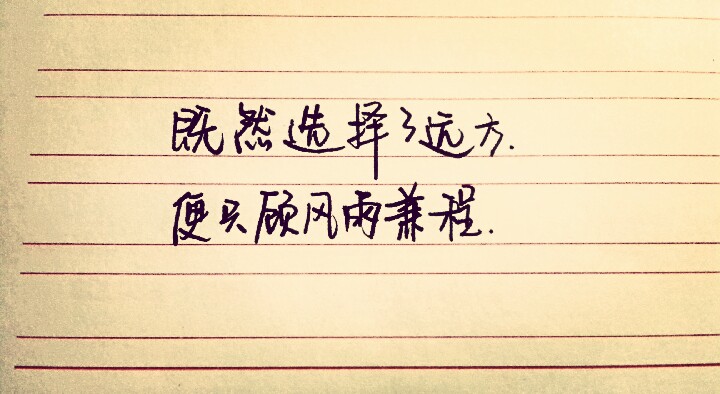 既然选择了远方.
便只顾风雨兼程.